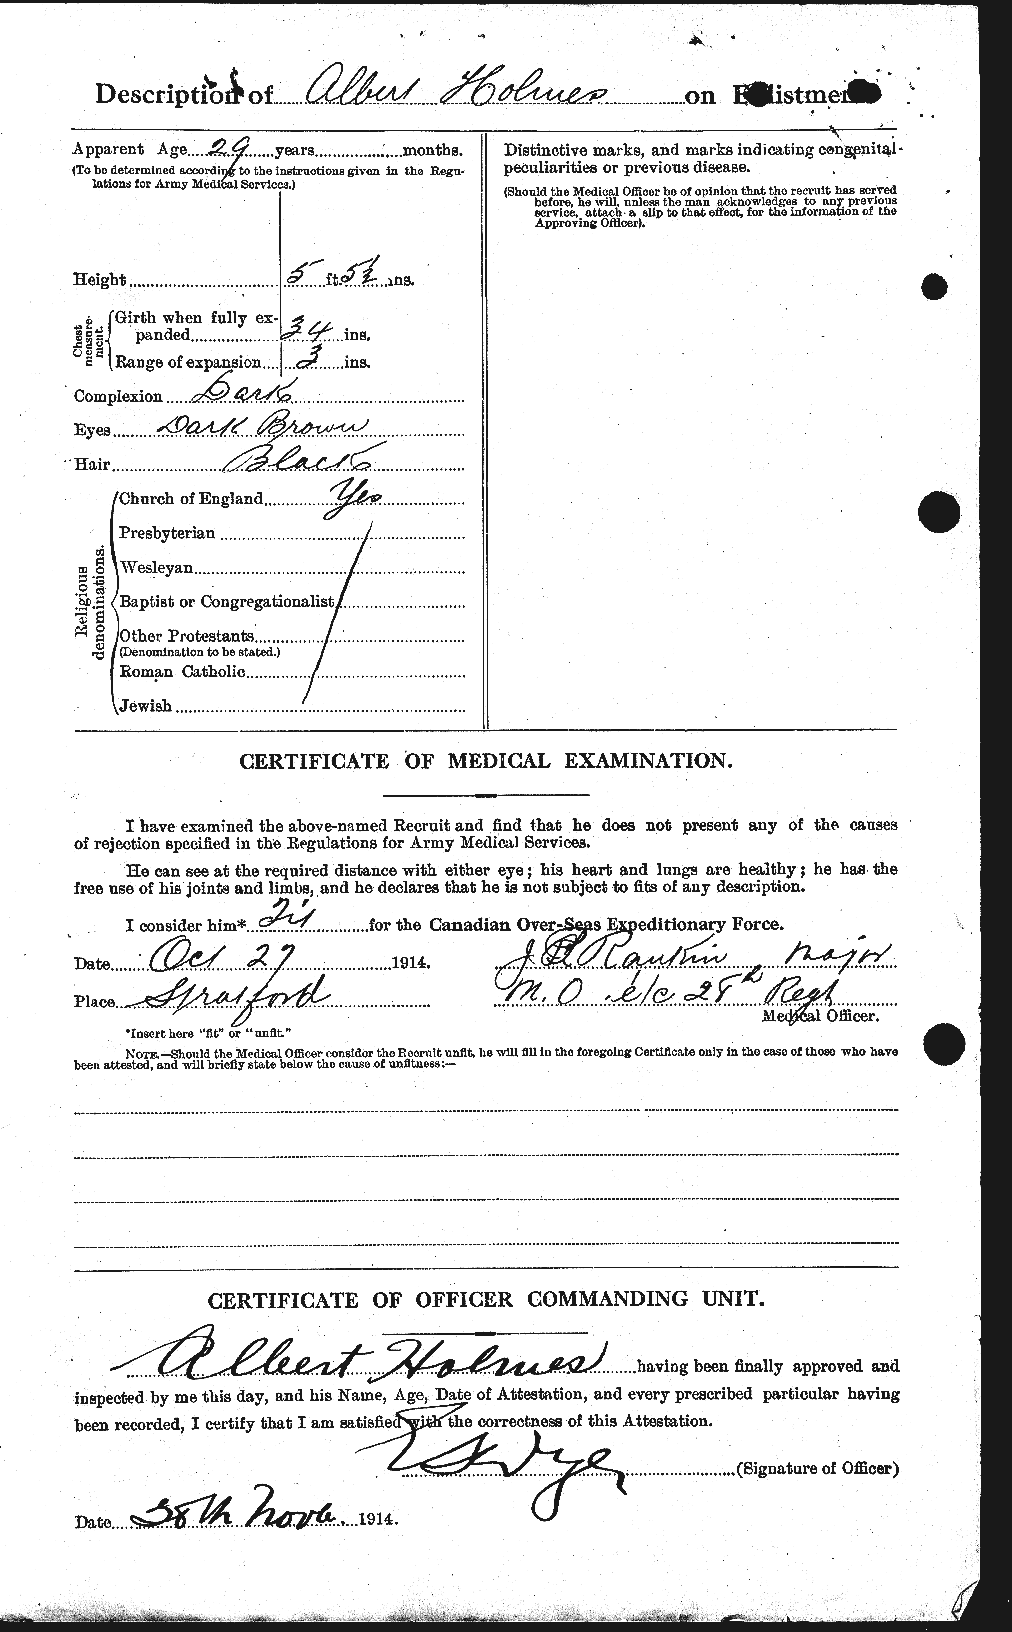 Description of Albert Holmes on Enlistment
Apparent Age 29 years months.
(To be determined according to the instructions given in the Regu-
lations for Army Medical Services.)
Height 5 ft. 5½ ins.
Chest measure-ment.
Girth when fully ex-
panded 34 ins.
Range of expansion 3 ins.
Complexion Dark
Eyes Dark Brown
Hair Black
Religious denominations.
Church of England Yes
Presbyterian
Wesleyan
Baptist or Congregationalist
Other Protestants
(Denomination to be stated.)
Roman Catholic
Jewish
Distinctive marks, and marks indicating congenital
peculiarities or previous disease.
(Should the Medical Officer be of opinion that the recruit has served
before, he will, unless the man acknowledges to any previous
service, attach a slip to that effect, for the information of the
Approving Officer).
CERTIFICATE OF MEDICAL EXAMINATION.
I have examined the above-named Recruit and find that he does not present any of the causes
of rejection specified in the Regulations for Army Medical Services.
He can see at the required distance with either eye; his heart and lungs are healthy; he has the
free use of his joints and limbs, and he declares that he is not subject to fits of any description.
I consider him* Fit for the Canadian Over-Seas Expeditionary Force.
Date Oct 27 1914. Rankin Major
Place Stratford M.O. i/c 28th Regt
Medical Officer.
*Insert here "fit" or "unfit."
NOTE.—Should the Medical Officer consider the Recruit unfit, he will fill in the foregoing Certificate only in the case of those who have
been attested, and will briefly state below the cause of unfitness:—
CERTIFICATE OF OFFICER COMMANDING UNIT.
Albert Holmes having been finally approved and
inspected by me this day, and his Name, Age, Date of Attestation, and every prescribed particular having
been recorded, I certify that I am satisfied with the correctness of this Attestation.
(Signature of Officer)
Date 28th Novb. 1914.